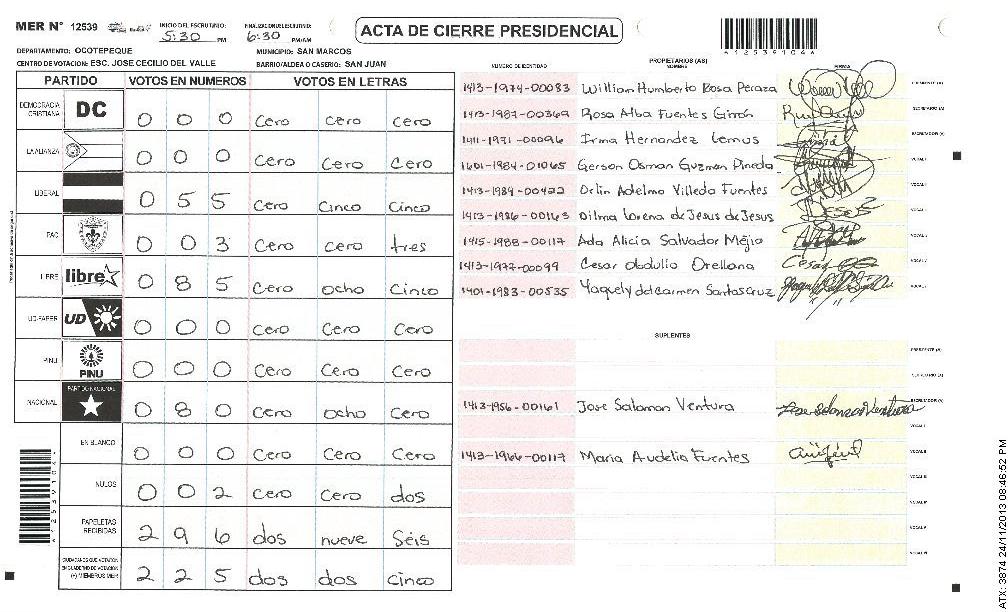 MER N° 12539 INICIO DEL ESCRUTINIO: 5:30 PM FINALIZACION ESCRUTINIO: 6:30 PM/AM ACTA DE CIERRE PRESIDENCIAL
DEPARTAMENTO: OCOTEPEQUE MUNICIPIO: SAN MARCOS
CENTRO DE VOTACION: ESC. JOSE CECILIO DEL VALLE BARRIO/ALDEA O CASERIO: SAN JUAN
PARTIDO VOTOS EN NUMEROS VOTOS EN LETRAS
DEMOCRACIA CRISTIANA DC 0 0 0 Cero Cero Cero
LA ALIANZA 0 0 0 Cero Cero Cero
LIBERAL 0 5 5 Cero Cinco Cinco
PAC 0 0 3 Cero Cero tres
LIBRE libre 0 8 5 Cero ocho Cinco
UD-FAPER UD 0 0 0 Cero Cero Cero
PINU PINU 0 0 0 Cero Cero Cero
NACIONAL PARTIDO NACIONAL 0 8 0 Cero ocho Cero
EN BLANCO 0 0 0 Cero Cero Cero
NULOS 0 0 2 Cero Cero dos
PAPELETAS RECIBIDAS 2 9 6 dos nueve Seis
CIUDADANOS QUE VOTARON EN CUADERNO DE VOTACION (+) MIEMBROS MER 2 2 5 dos dos Cinco
A125391044
NUMERO DE IDENTIDAD PROPIETARIOS (AS) NOMBRE FIRMA
1413-1974-00083 William Humberto Rosa Peraza PRESIDENTE (A)
1413-1987-00369 Rosa Alba Fuentes Girón SECRETARIO (A)
1411-1971-00096 Irma Hernandez Lemus ESCRUTADOR (A)
1601-1984-01065 Gerson Osman Guzman Pineda VOCAL I
1413-1989-00422 Orlin Adelmo Villeda Fuentes
1413-1986-00163 Dilma Lorena de Jesus de Jesus
1415-1988-00117 Ada Alicia Salvador Mejio
1413-1977-00099 Cesar Obdulio Orellana
1401-1983-00535 Yaquely del carmen Santos Cruz
SUPLENTES
PRESIDENTE (A)
SECRETARIO (A)
1413-1956-00161 Jose Salomon Ventura ESCRUTADOR (A)
VOCAL I
1413-1966-00117 Maria Audelia Fuentes VOCAL II
ATX: 3874 24/11/2013 08:46:52 PM